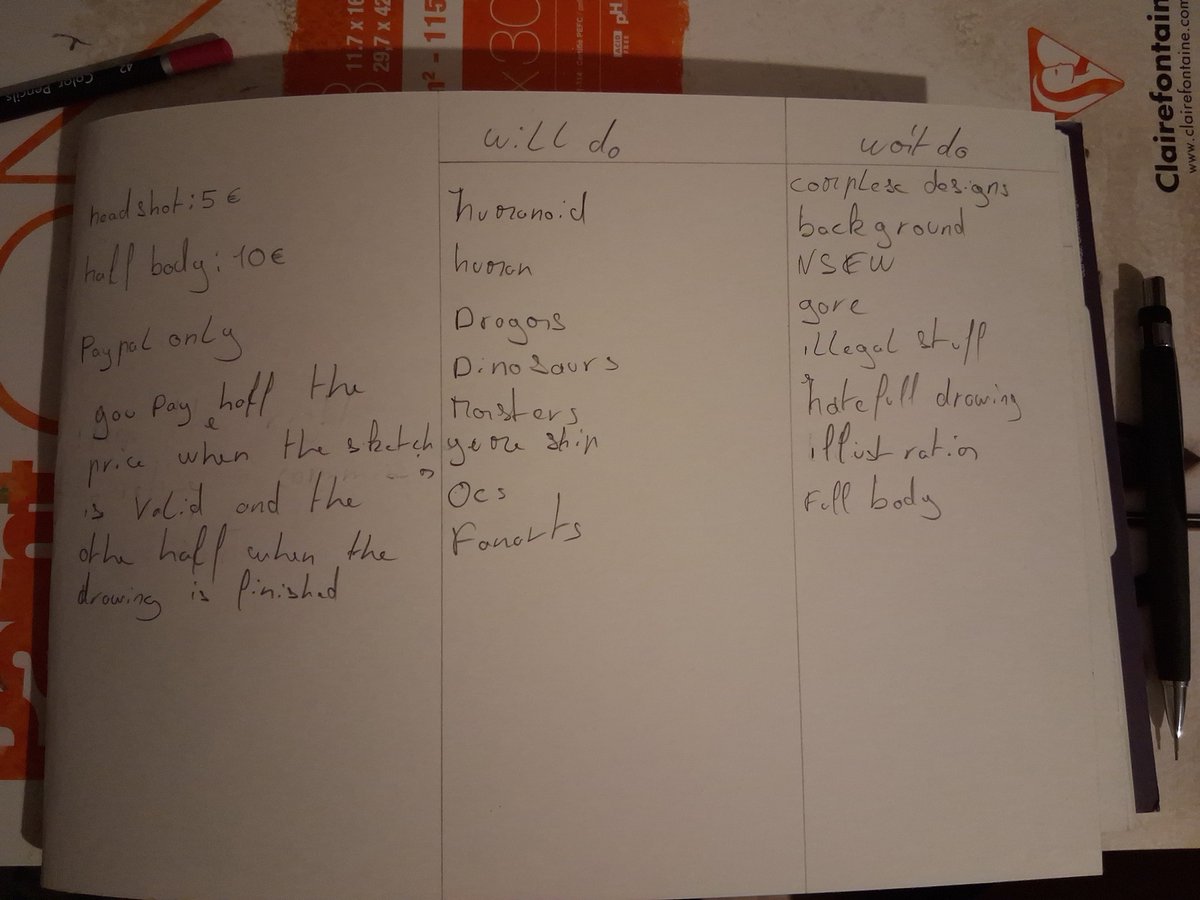 will do
won't do
head shot: 5 €
half body: 10€
Paypal only
you Pay half the
price when the sketch
is valid and the
othe half when the
drawing is finished
humanoid
human
Dragons
Dinosaurs
Monsters
ship
Ocs
Fanarts
complexe designs
background
NSFW
gore
illegal stuff
hatefull drawing
illustration
Full body
Color Pencils
11.7 x 16
29.7 x 42
m² - 115
x 30
ACID FREE
pH
Clairefontain
www.clairefontaine.com